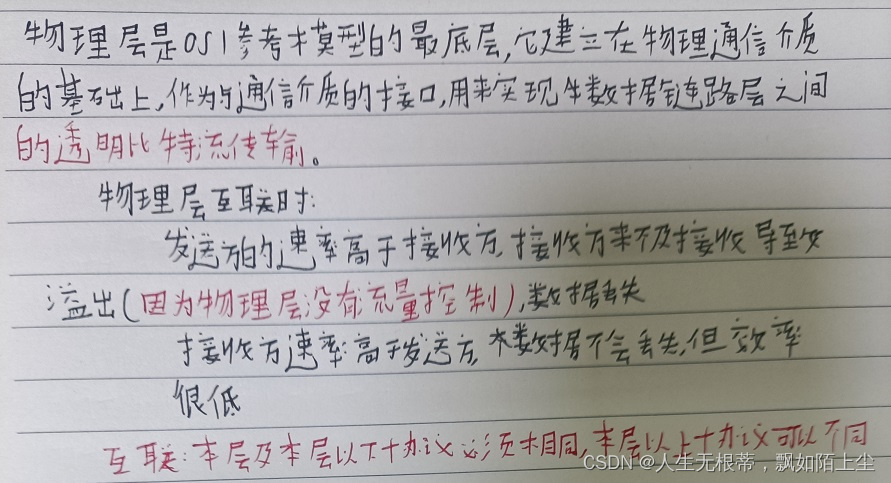 物理层是OSI参考模型的最底层,它建立在物理通信介质
的基础上,作为与通信介质的接口,用来实现数据链路层之间
的透明比特流传输。
物理层互联时:
发送方的速率高于接收方,接收方来不及接收导致
溢出(因为物理层没有流量控制),数据丢失
接收方速率高于发送方,数据不会丢失,但效率
很低
互联:本层及本层以下协议必须相同,本层以上协议可以不同
CSDN @人生无根蒂,飘如陌上尘